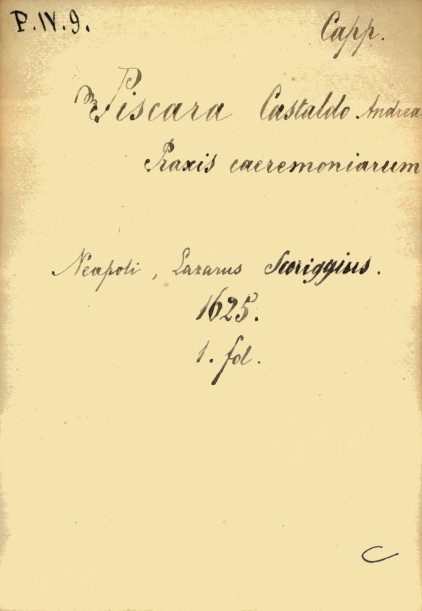 P.IV.9.
Capp.
Piscara Castaldo Andrea
Praxis caeremoniarum
Neapoli, Lazarus Scoriggius.
1625.
1. fol.
C